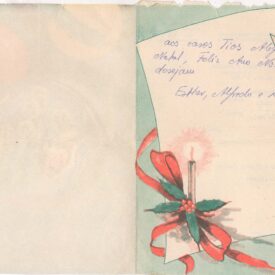 aos caros Tios
Natal, Feliz Ano
desejam
Esther, Alfredo e